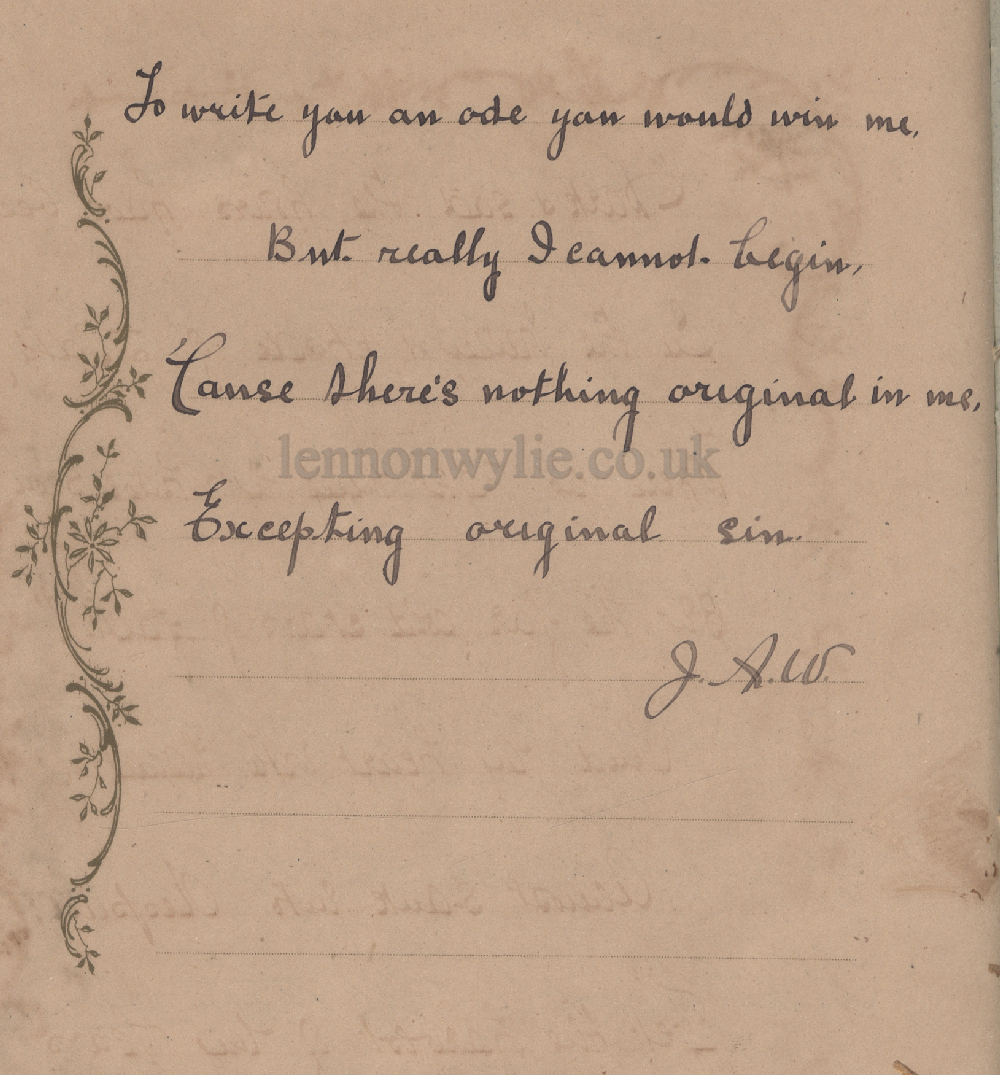 To write you an ode you would win me,
But really I cannot begin,
'Cause there's nothing original in me,
lennonwylie.co.uk
Excepting original sin.
J. A. W.